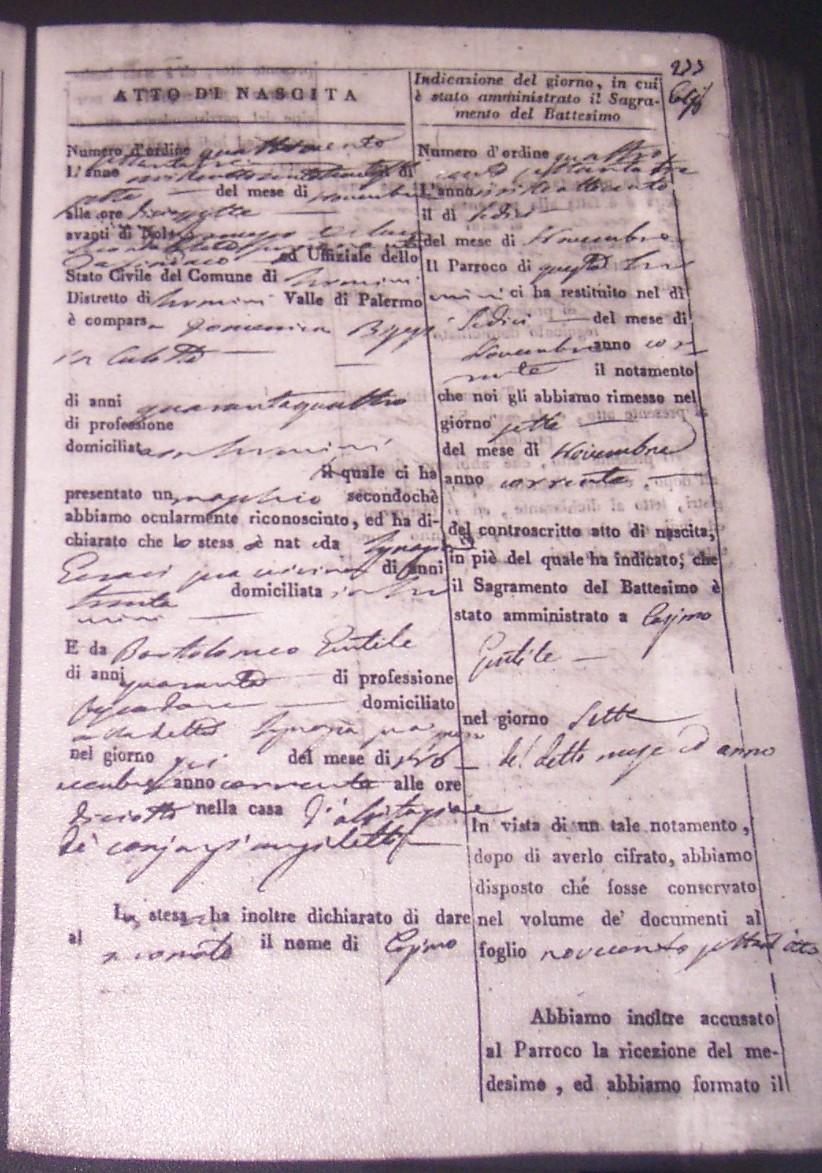 233
ATTO DI NASCITA
Numero d'ordine quattrocento
settantatre
L'anno milleottocento di
sette del mese di Novembre
alle ore diecisette
avanti di Noi
ed Uffiziale dello
Stato Civile del Comune di Termini
Distretto di Termini Valle di Palermo
è comparsa Domenica
in Culotta
di anni quarantaquattro
di professione
domiciliata in Termini
il quale ci ha
presentato un maschio secondochè
abbiamo ocularmente riconosciuto, ed ha di-
chiarato che lo stesso è nato da Ignazia
Geraci sua di anni
trenta domiciliata in Ter
mini
E da Bortolomeo Gentile
di anni quaranta di professione
domiciliato
colla detta Ignazia sua
nel giorno sei del mese di No
vembre anno corrente alle ore
diciotto nella casa d'abitazione
di conjugi anzidetti
La stessa ha inoltre dichiarato di dare
al neonato il nome di Cosimo
Indicazione del giorno, in cui
è stato amministrato il Sagra-
mento del Battesimo
Numero d'ordine quattro
cento settantatre
L'anno milleottocento
il dì sedici
del mese di Novembre
Il Parroco di questa Ter
mini ci ha restituito nel dì
sedici del mese di
Novembre anno cor
rente il notamento
che noi gli abbiamo rimesso nel
giorno sette
del mese di Novembre
anno corrente
del controscritto atto di nascita,
in piè del quale ha indicato, che
il Sagramento del Battesimo è
stato amministrato a Cosimo
Gentile
nel giorno Sette
del detto mese ed anno
In vista di un tale notamento,
dopo di averlo cifrato, abbiamo
disposto ché fosse conservato
nel volume de' documenti al
foglio novecento settantotto
Abbiamo inoltre accusato
al Parroco la ricezione del me-
desimo, ed abbiamo formato il